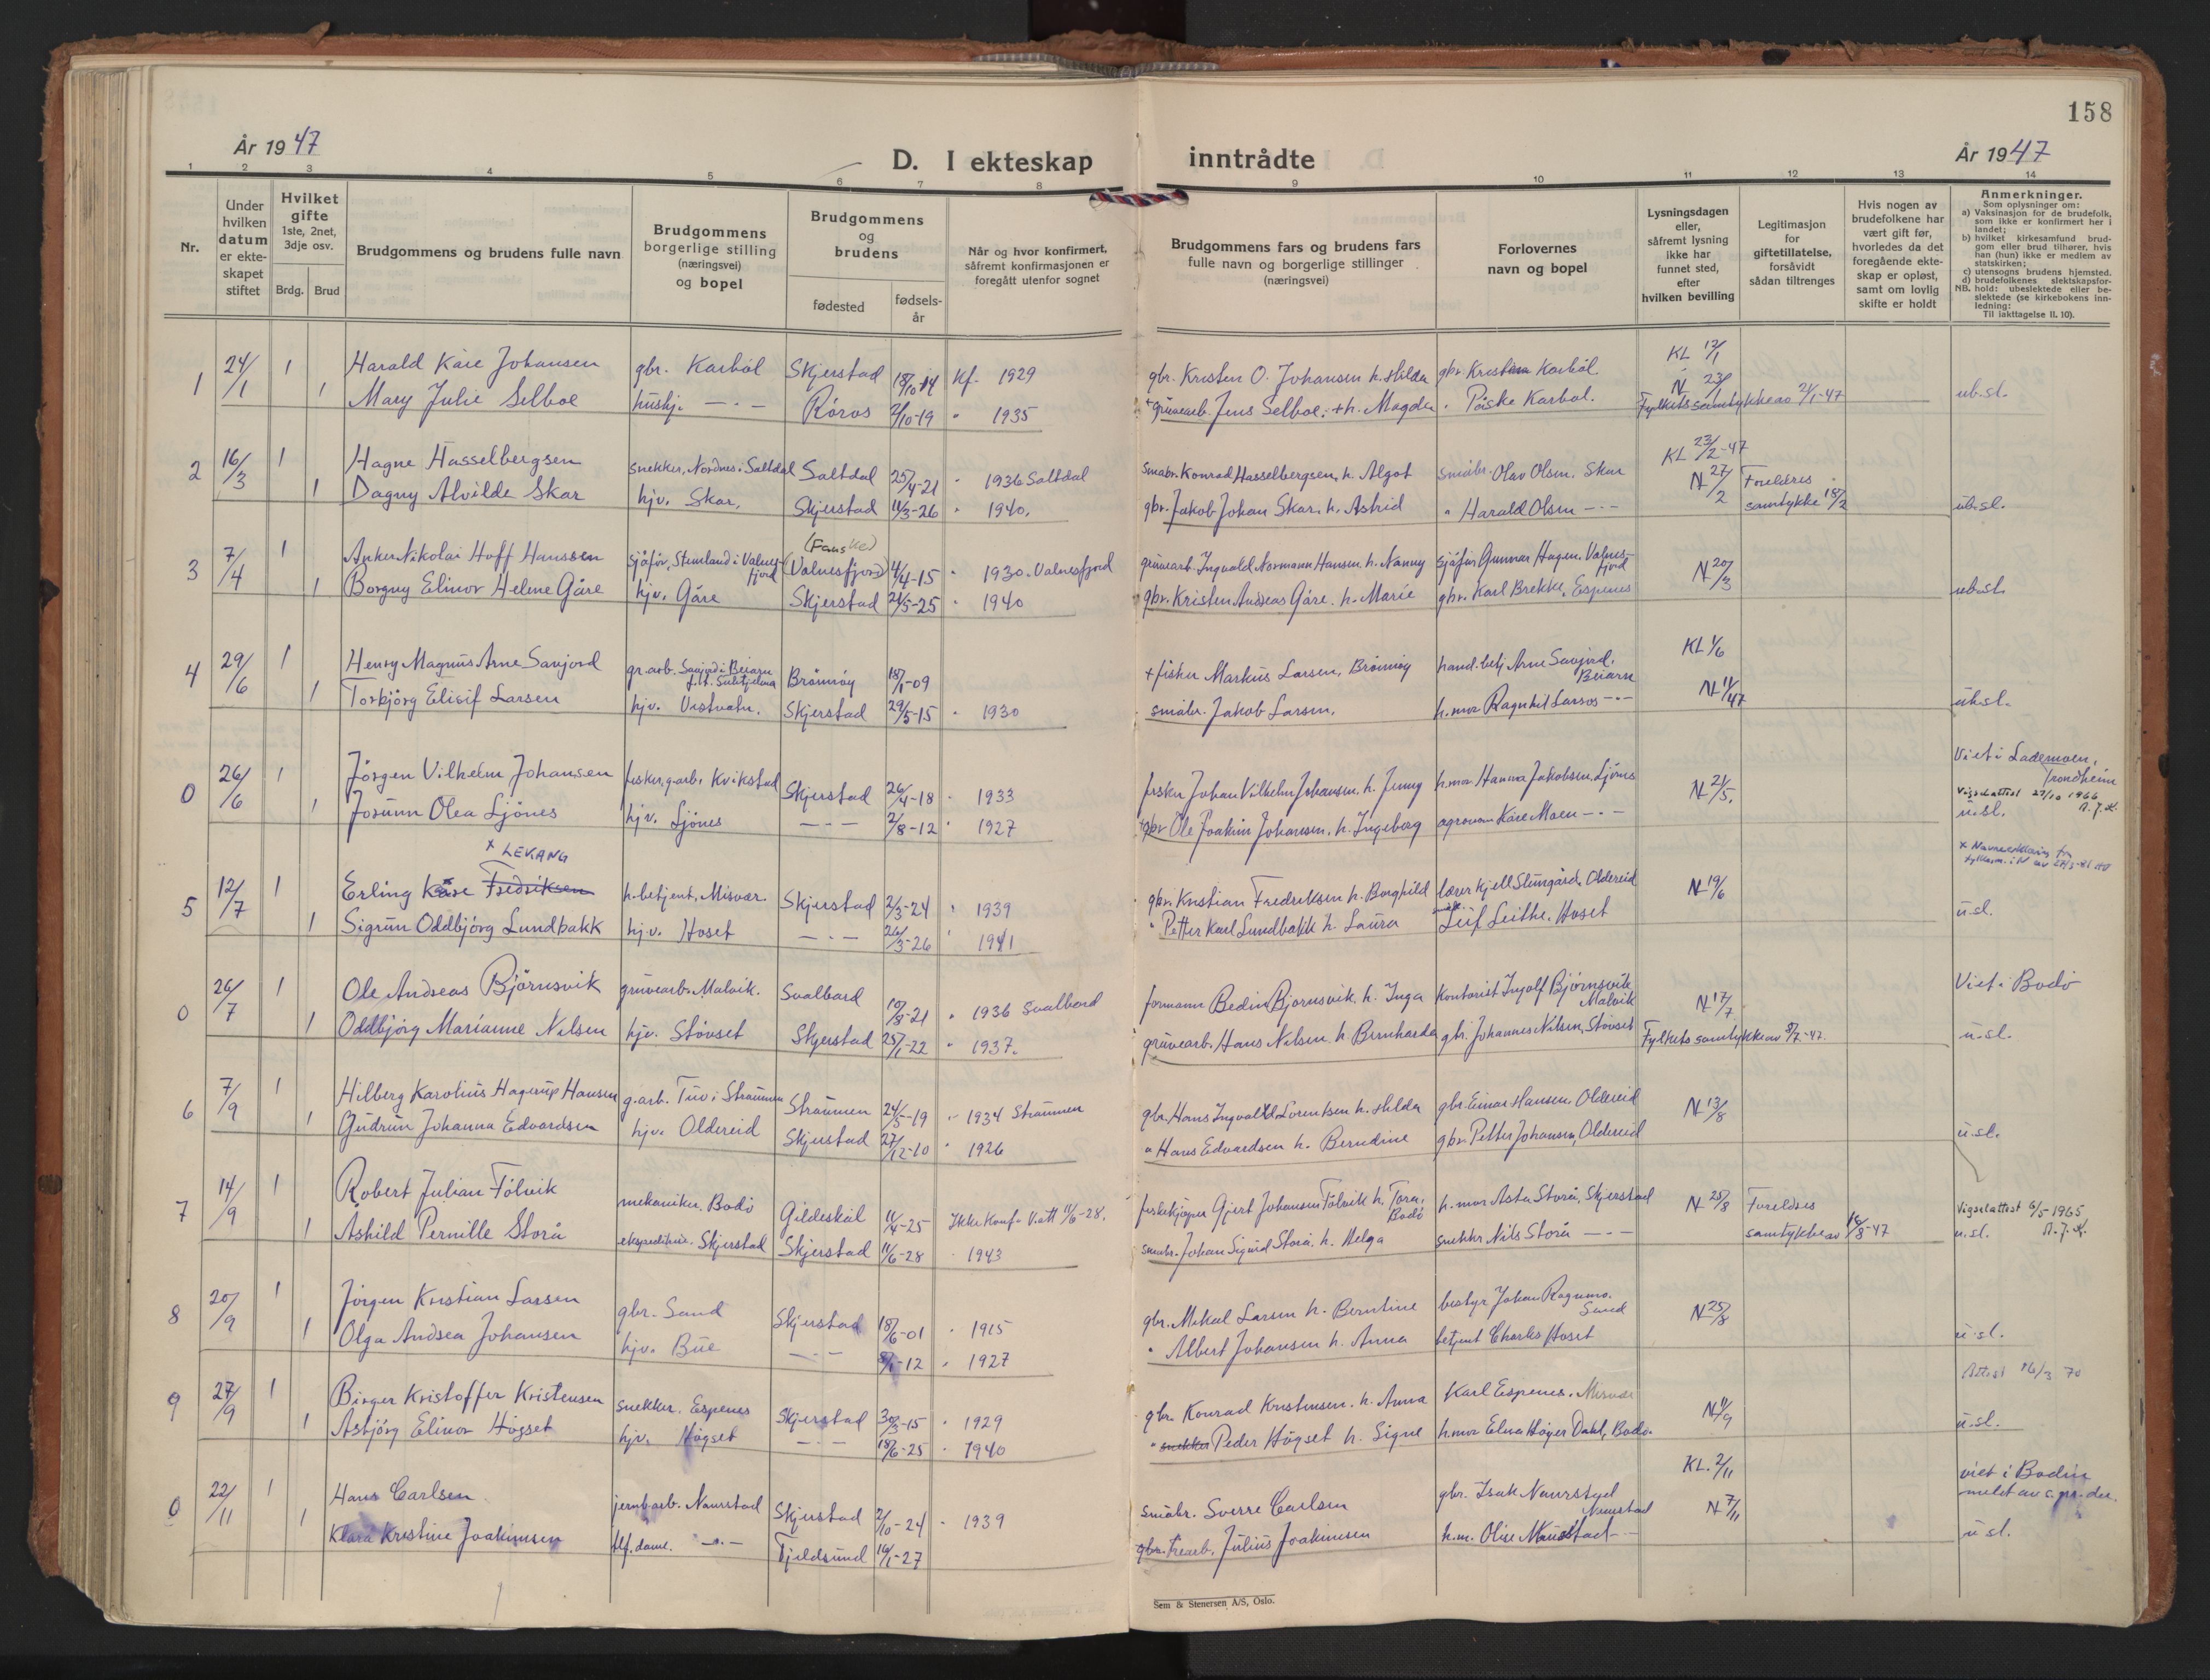 158
År 1947
D. I ekteskap inntrådte
År 1947
1 2 3 4 5 6 7 8 9 10 11 12 13 14
Nr.
Under hvilken datum er ekteskapet stiftet
Hvilket gifte 1ste, 2net, 3dje osv.
Brdg. Brud
Brudgommens og brudens fulle navn
Brudgommens borgerlige stilling (næringsvei) og bopel
Brudgommens og brudens
fødested
fødsels-år
Når og hvor konfirmert, såfremt konfirmasjonen er foregått utenfor sognet
Brudgommens fars og brudens fars fulle navn og borgerlige stillinger (næringsvei)
Forlovernes navn og bopel
Lysningsdagen eller, såfremt lysning ikke har funnet sted, efter hvilken bevilling
Legitimasjon for giftetillatelse, forsåvidt sådan tiltrenges
Hvis nogen av brudefolkene har vært gift før, hvorledes da det foregående ekteskap er opløst, samt om lovlig skifte er holdt
Anmerkninger.
Som oplysninger om:
a) Vaksinasjon for de brudefolk, som ikke er konfirmert her i landet;
b) hvilket kirkesamfund brudgom eller brud tilhører, hvis han (hun) ikke er medlem av statskirken;
c) utensogns brudens hjemsted.
d) brudefolkenes slektskapsforhold: ubeslektede eller beslektede (se kirkebokens innledning:
NB.
Til iakttagelse II. 10).
1 24/1 1 Harald Kåre Johansen gbr. Karbøl Skjerstad 18/10-14 Kf. 1929 gbr. Kristen O. Johansen h. Hilda gbr. Kristian Karbøl KL 12/1
1 Mary Julie Selboe hushj. -"- Röros 2/10-19 " 1935 + gruvearb. Jens Selboe. + h. Magda " Påske Karbøl. N 23/1 Fylkets samtykke av 21/1-47 ub.sl.
2 16/3 1 Hagne Hasselbergsen snekker, Nordnes i Saltdal Saltdal 25/4-21 " 1936 Saltdal småbr. Konrad Hasselbergsen, h. Algot småbr. Olav Olsen. Skar KL 23/2-47
1 Dagny Alvilde Skar hjv. Skar. Skjerstad 11/3-26 " 1940. gbr. Jakob Johan Skar. h. Astrid " Harald Olsen -"- N 27/2 Foreldres samtykke 18/2 ub.sl.
3 7/4 1 Anker Nikolai Hoff Hanssen sjåfør, Stemland i Valnesfjord (Fauske) (Valnesfjord) 4/4-15 " 1930. Valnesfjord gruvearb. Ingvald Normann Hansen. h. Nanny sjåfør Gunnar Hagen. Valnesfjord N 20/3
1 Borgny Elinor Helene Gåre hjv. Gåre Skjerstad 21/5-25 " 1940 gbr. Kristen Andreas Gåre. h. Marie gbr. Karl Brekke, Espenes ub.sl.
4 29/6 1 Henry Magnus Arne Savjord gr.arb. Savjord i Beiarn f.t. Sulitjelma Brönnöy 18/1-09 + fisker Markus Larsen, Brönnöy hand.betj Arne Savjord. Beiarn KL 1/6
1 Torbjörg Elisif Larsen hjv. Vestvatn. Skjerstad 29/5-15 " 1930 småbr. Jakob Larsen. h.mor Ragnhil Larsos -"- N 11/47 ub.sl.
0 26/6 1 Jörgen Vilhelm Johansen fisker, g.arb. Kvikstad Skjerstad 26/4-18 " 1933 fisker Johan Vilhelm Johansen. h. Jenny h.mor Hanna Jakobsen. Ljönes N 21/5. Viet i Lademoen, Trondheim
1 Jorunn Olea Ljönes hjv. Ljönes -"- 2/8-12 " 1927 gbr Ole Joakim Johansen, h. Ingeborg agronom Kåre Moen -"- Vigselattest 27/10 1966 u.sl.
x LEKANG
5 12/7 1 Erling Kåre Fredriksen h.betjent, Misvær. Skjerstad 2/3-24 " 1939 gbr. Kristian Fredriksen h. Borghild lærer Kjell Slungård, Oldereid N 19/6 x Navneerklæring
1 Sigrun Oddbjörg Lundbakk hj.v. Hoset -"- 26/3-26 " 1941 " Petter Karl Lundbakk h. Laura Leif Leithe. Hoset u.sl.
0 26/7 1 Ole Andreas Björnsvik gruvearb. Malvik. Svalbard 10/8-21 " 1936 Svalbard formann Bedin Bjørnsvik. h. Inga Kontorist Ingolf Bjørnsvik Malvik N 17/7 Viet i Bodö
1 Oddbjörg Marianne Nilsen hjv. Stövset Skjerstad 25/1-22 " 1937. gruvearb. Hans Nilsen. h. Bernharda gbr. Johannes Nilsen, Stövset Fylkets samtykke av 8/7-47. u.sl.
6 7/9 1 Hilberg Karolius Hagerup Hansen g.arb. Tuv i Straumen Straumen 24/5-19 " 1934 Straumen gbr. Hans Ingvald Lorentsen h. Hilda gbr. Einar Hansen. Oldereid N 13/8
1 Gudrun Johanna Edvardsen hjv. Oldereid Skjerstad 27/12-10 " 1926 " Hans Edvardsen h. Berndine gbr. Petter Johansen, Oldereid u.sl.
7 14/9 1 Robert Julian Fölvik mekaniker. Bodö Gildeskål 11/4-25 Ikke konf. fiskekjöper Gjert Johansen Fölvik h. Tora. Bodö h.mor Asta Storå. Skjerstad N 25/8 Foreldres Vigselattest 6/5-1965
1 Åshild Pernille Storå Skjerstad Skjerstad 11/6-28 " 1943 småbr. Johan Sigurd Storå. h. Helga snekker Nils Storå -"- samtykke av 16/8-47 u.sl.
8 20/9 1 Jörgen Kristian Larsen gbr. Sand Skjerstad 18/6-01 " 1915 gbr. Mikal Larsen h. Berntine bestyr Johan Rognmo. Sand N 25/8
1 Olga Andrea Johansen hjv. Bue -"- 8/1-12 " 1927 " Albert Johansen h. Anna betjent Charles Hoset u.sl.
9 27/9 1 Birger Kristoffer Kristensen snekker. Espenes Skjerstad 30/3-15 " 1929 gbr. Konrad Kristensen. h. Anna Karl Espenes. Misvær N 11/9 Attest 16/3 70
1 Asbjörg Elinor Högset hjv. Högset -"- 18/6-25 " 1940 " snekker Peder Högset h. Signe h.mor Elna Höyer Dahl, Bodö. u.sl.
0 22/11 1 Hans Carlsen jernb.arb. Naurstad Skjerstad 2/10-24 " 1939 småbr. Sverre Carlsen gbr. Isak Naurstad Naurstad KL. 2/11 viet i Bodin
1 Klara Kristine Joakimsen tlf.dame. -"- Tjeldsund 16/1-27 gbr. trearb. Julius Joakimsen h.m. Olise Naurstad -"- N 7/11 u.sl.
Sem & Stenersen A/S, Oslo.